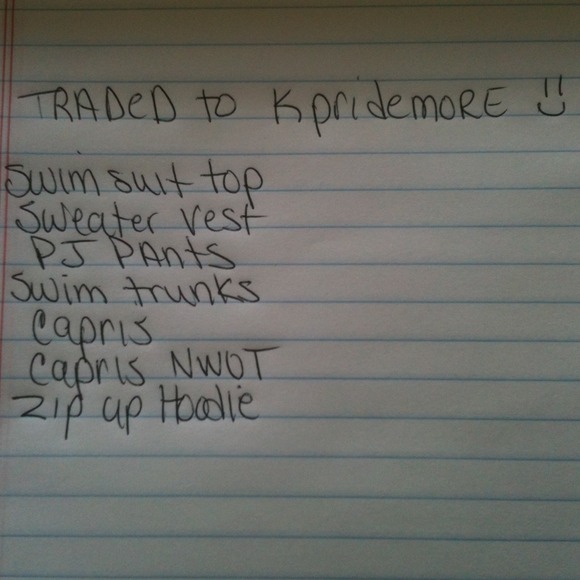 TRADED to Kpridemore ü
Swim suit top
Sweater vest
PJ PAnts
Swim trunks
Capris
Capris NWOT
Zip up Hoodie